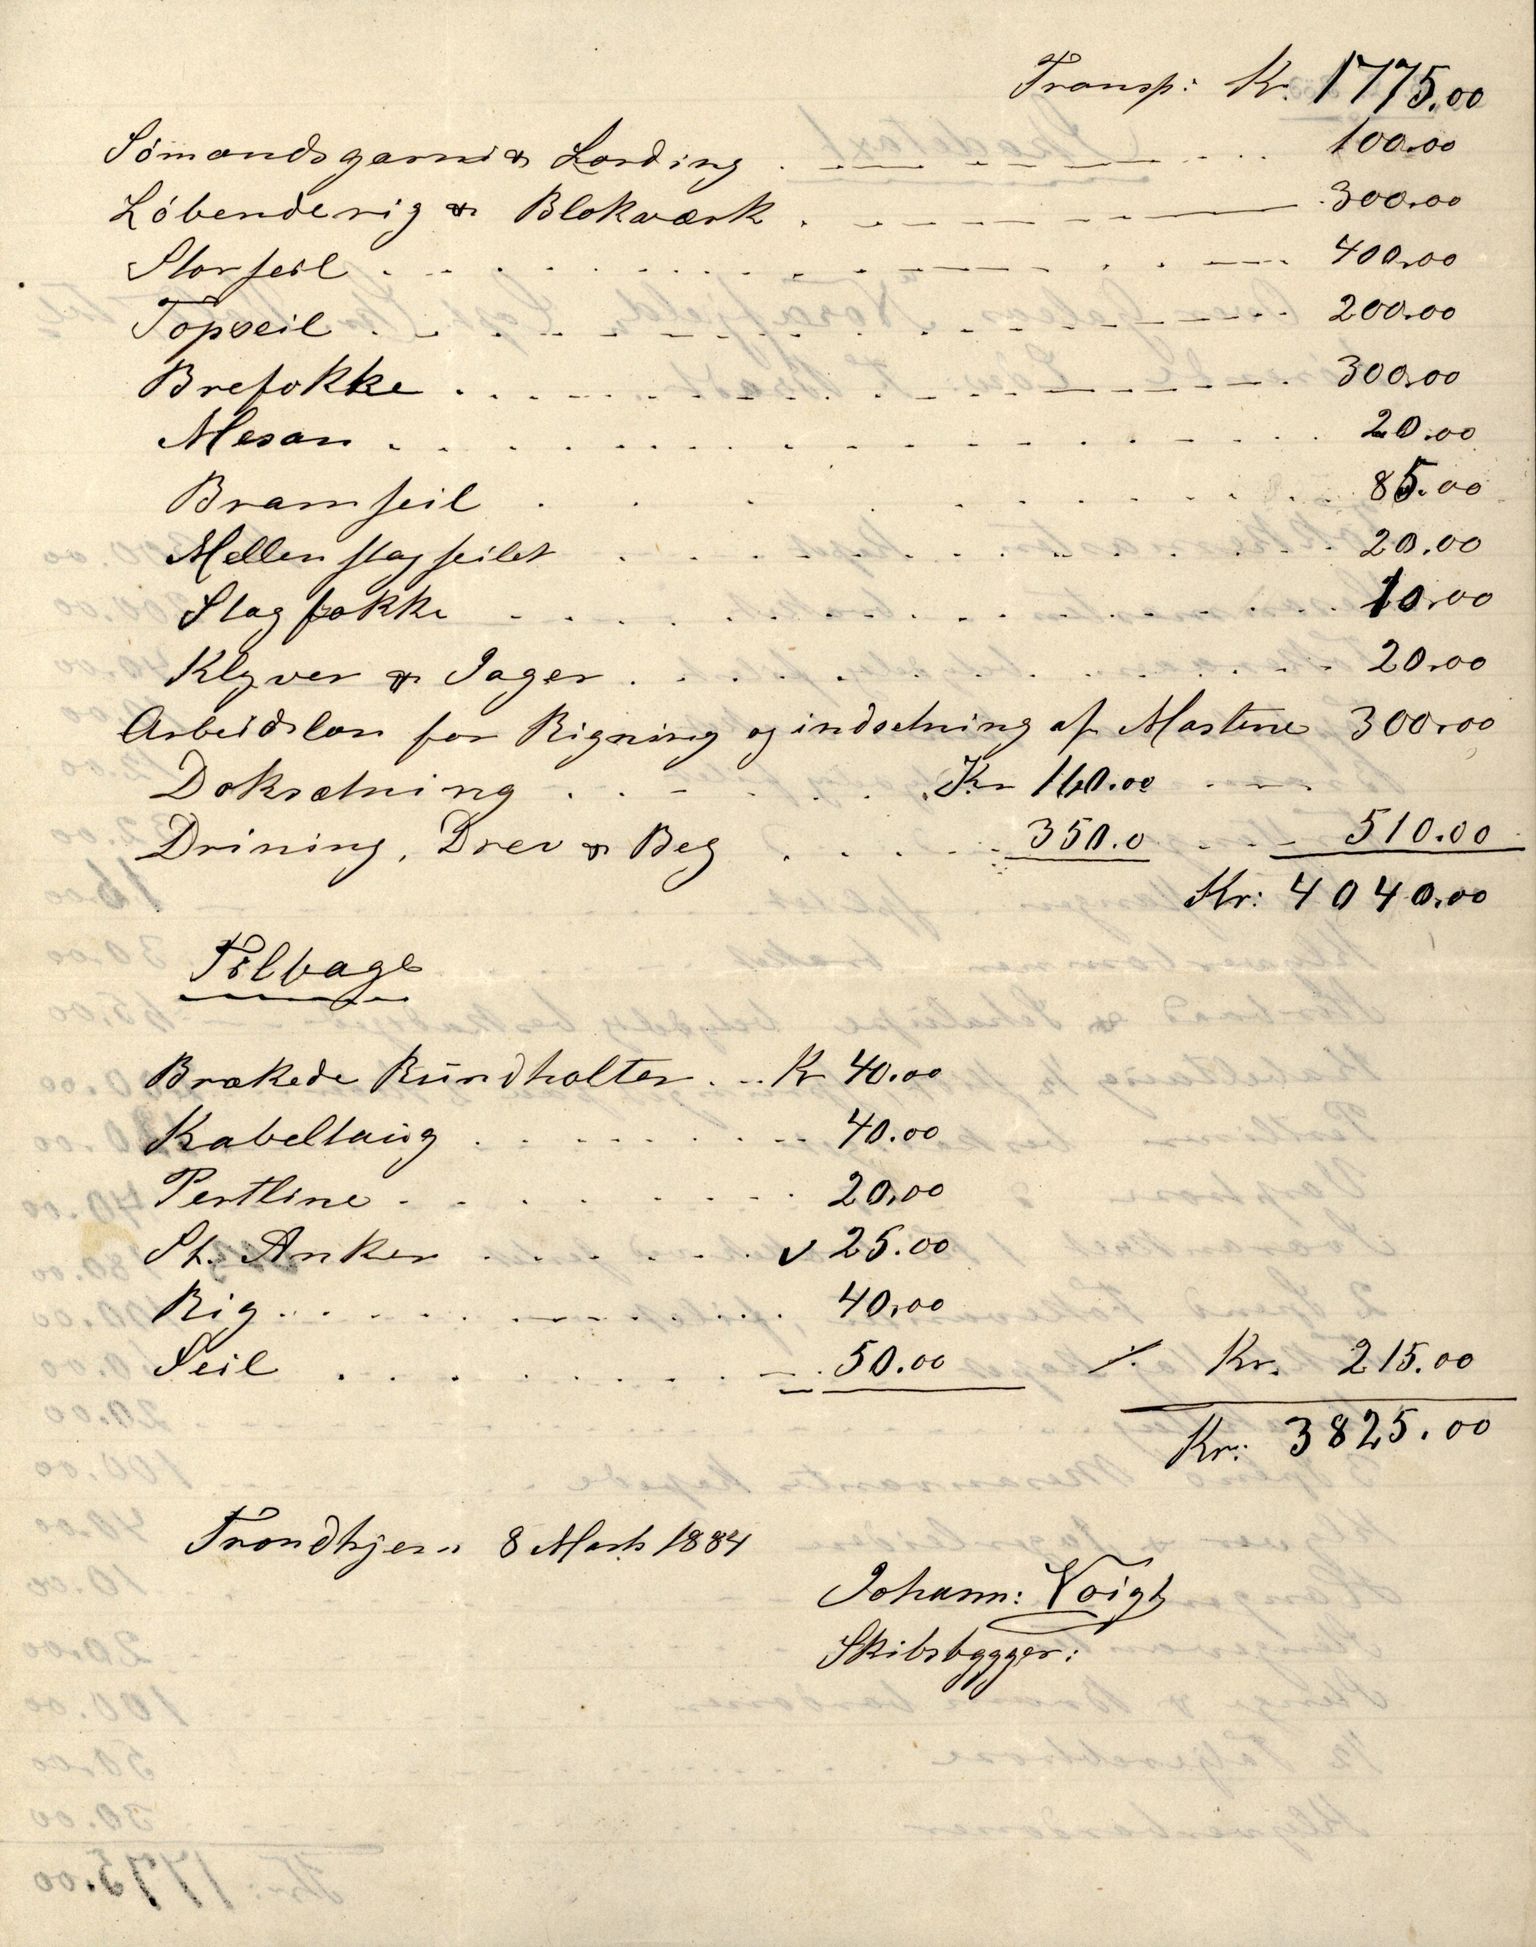 Transp: Kr. 1775.00
Sömandsgarn & Lording . . . 100.00
Löbenderig & Blokværk . . . 300.00
Storseil . . . 400.00
Topseil . . . 200.00
Brefokke . . . 300.00
Mesan . . . 20.00
Bramseil . . . 85.00
Mellenstagseilet . . . 20.00
Stagfokke . . . 10.00
Klyver & Jager . . . 20.00
Arbeidslon for Rigning og indsetning af Mastene 300.00
Doksætning . . . Kr 160.00
Drining, Drev & Beg . . . 350.0 . . . 510.00
Kr: 4040.00
Tilbage
Brækede Rundholter . . Kr 40.00
Kabeltaug . . . 40.00
Pertline . . . 20.00
St. Anker . . . 25.00
Rig . . . 40.00
Seil . . . 50.00 ⁒ Kr. 215.00
Kr: 3825.00
Trondhjem 8 Marts 1884
Johann: Voigt
Skibsbygger: